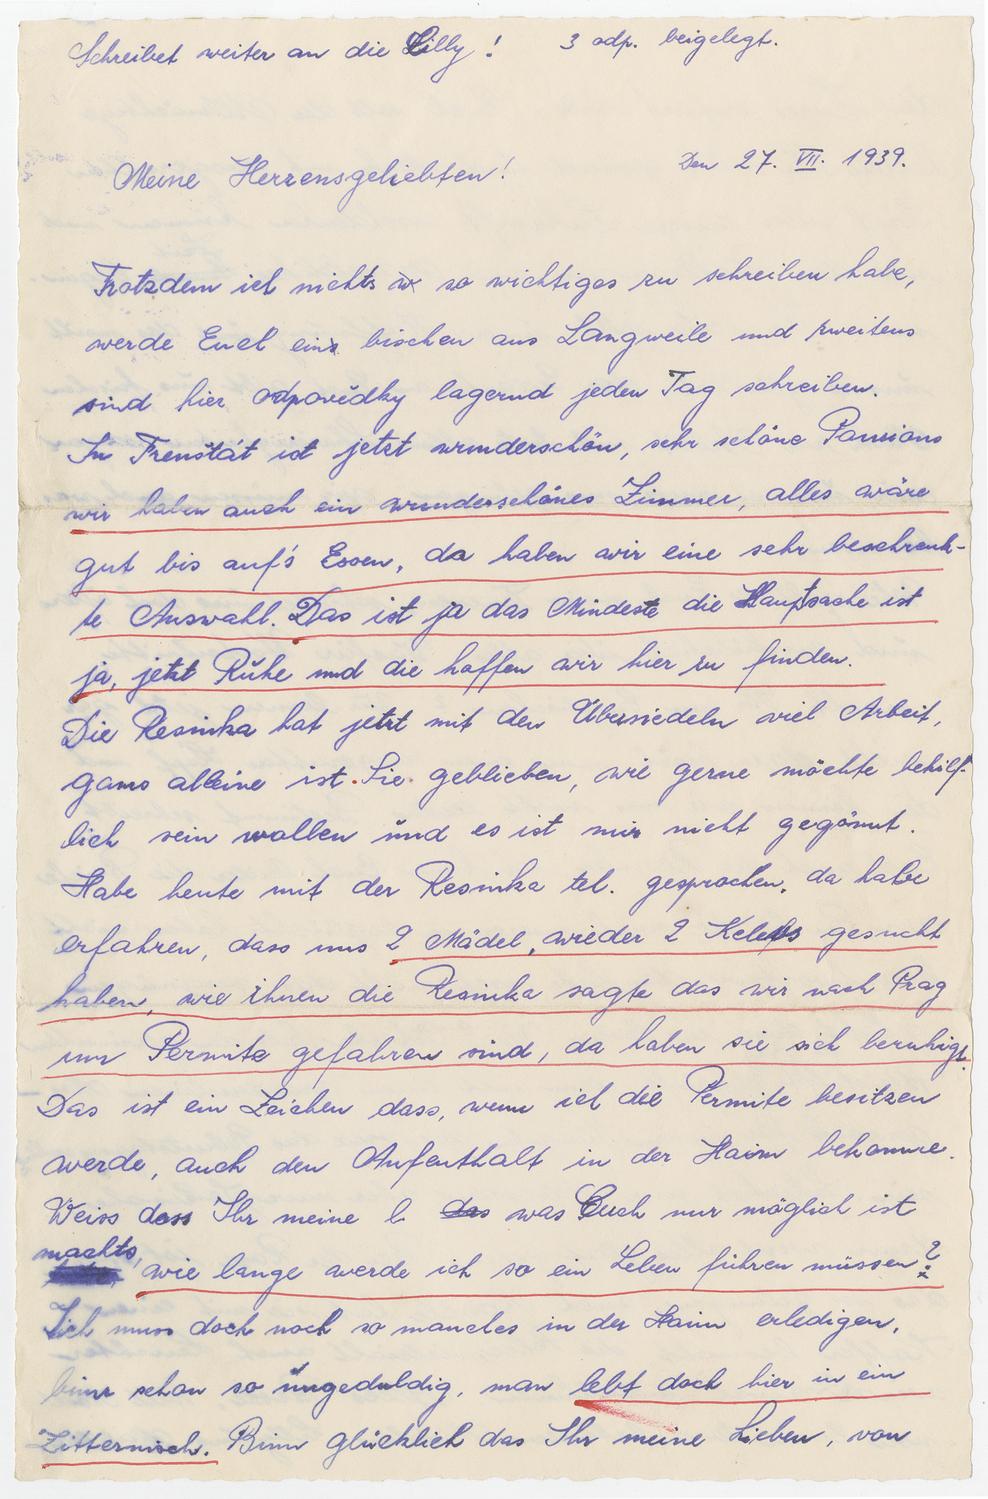 Schreibet weiter an die Lilly! 3 odp. beigelegt.
Den 27. VII. 1939.
Meine Herzensgeliebten!
Trotzdem ich nichts so wichtiges zu schreiben habe,
werde Euch ein bischen aus Langweile und zweitens
sind hier odpovědky lagernd jeden Tag schreiben.
In Frenštát ist jetzt wunderschön, sehr schöne Pansions
wir haben auch ein wunderschönes Zimmer, alles wäre
gut bis auf's Essen, da haben wir eine sehr beschrenk-
te Auswahl. Das ist ja das Mindeste die Hauptsache ist
ja, jetzt Ruhe und die hoffen wir hier zu finden.
Die Resinka hat jetzt mit den Übersiedeln viel Arbeit,
gans alleine ist Sie geblieben, wie gerne möchte behilf-
lich sein wollen und es ist mir nicht gegönnt.
Habe heute mit der Resinka tel. gesprochen, da habe
erfahren, dass uns 2 Mädel, wieder 2 gesucht
haben, wie ihnen die Resinka sagte das wir nach Prag
um Permite gefahren sind, da haben sie sich beruhigt.
Das ist ein Zeichen dass, wenn ich die Permite besitzen
werde, auch den Aufenthalt in der Haim bekomme.
Weiss dass Ihr meine l. das was Euch nur möglich ist
machts, wie lange werde ich so ein Leben führen müssen?
Ich muss doch noch so manches in der Haim erledigen,
binn schon so ungeduldig, man lebt doch hier in ein
Zitternisch. Binn glücklich das Ihr meine Lieben, von